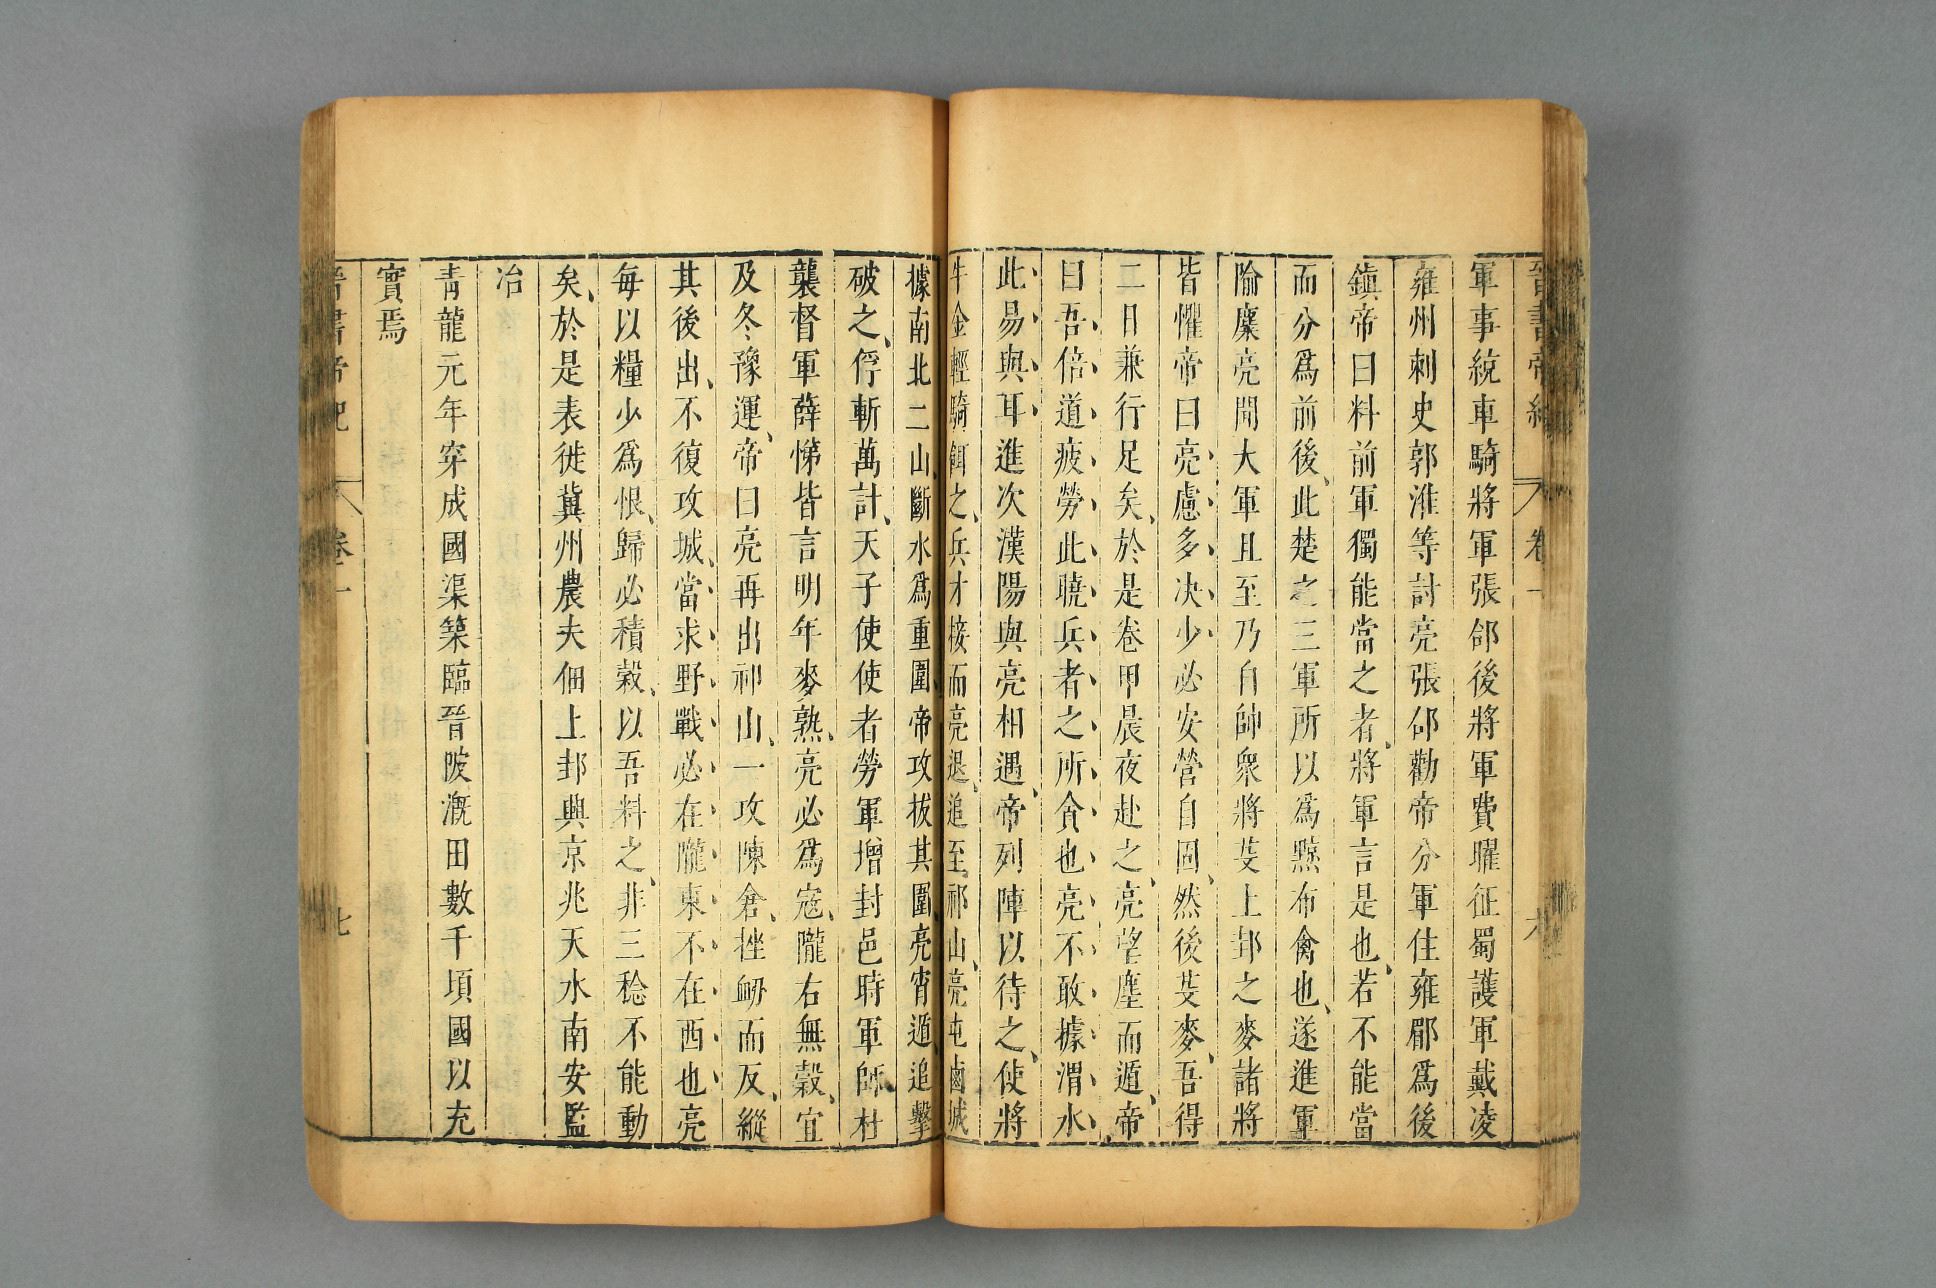 晉書帝紀 卷一 六
軍事統車騎將軍張郃後將軍費曜征蜀護軍戴凌
雍州刺史郭淮等討亮張郃勸帝分軍住雍郿爲後
鎮帝曰料前軍獨能當之者將軍言是也若不能當
而分爲前後此楚之三軍所以爲黥布禽也遂進軍
隃麋亮聞大軍且至乃自帥衆將芟上邽之麥諸將
皆懼帝曰亮慮多决少必安營自固然後芟麥吾得
二日兼行足矣於是卷甲晨夜赴之亮望塵而遁帝
曰吾倍道疲勞此曉兵者之所貪也亮不敢據渭水
此易與耳進次漢陽與亮相遇帝列陣以待之使將
牛金輕騎餌之兵才接而亮退追至祁山亮屯鹵城
據南北二山斷水爲重圍帝攻拔其圍亮宵遁追擊
破之俘斬萬計天子使使者勞軍增封邑時軍師杜
襲督軍薛悌皆言明年麥熟亮必爲寇隴右無穀宜
及冬豫運帝曰亮再出祁山一攻陳倉挫衂而反縱
其後出不復攻城當求野戰必在隴東不在西也亮
每以糧少爲恨歸必積穀以吾料之非三稔不能動
矣於是表徙冀州農夫佃上邽興京兆天水南安監
冶
青龍元年穿成國渠築臨晉陂漑田數千頃國以充
實焉
晉書帝紀 卷一 七